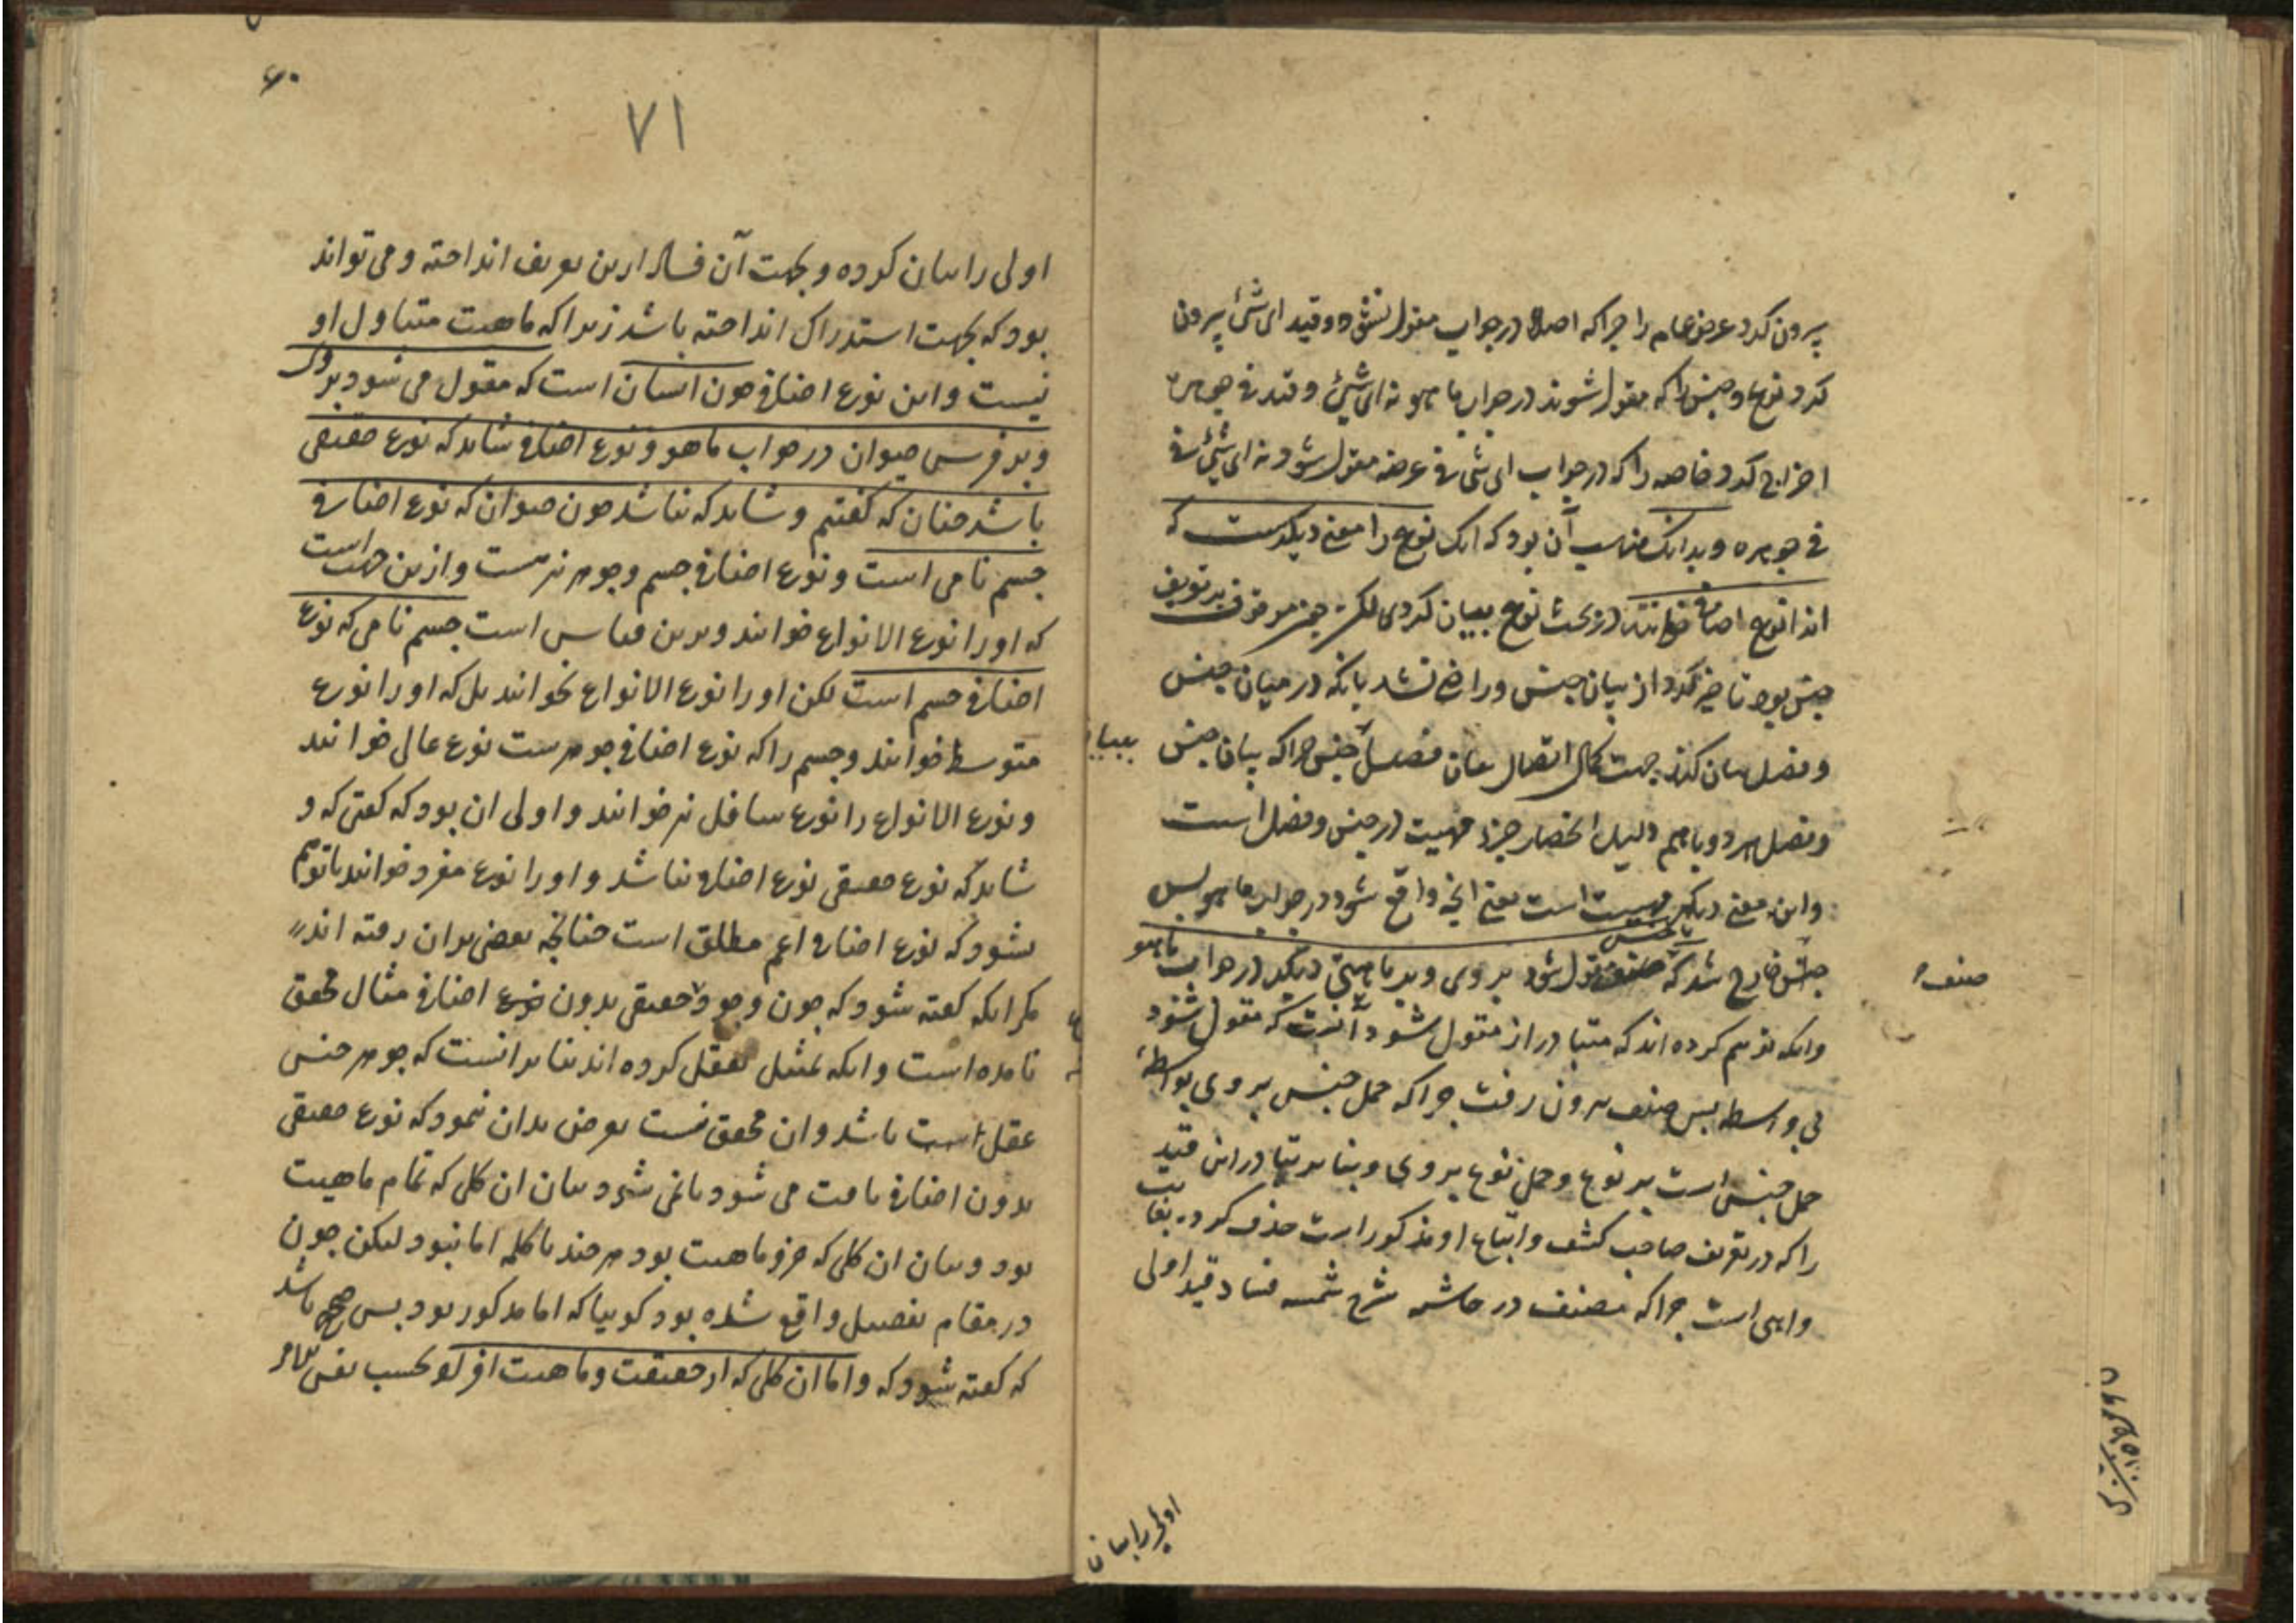 بیرون کرد عرض عام را چراکه اصلا در جواب مقول نشود و قید ای شئ بیرون
کرد نوع و جنس را که مقول شوند در جواب ما هو نه ای شئ و قید فی جوهره
اخراج کرد خاصه را که در جواب ای شئ فی عرضه مقول شود نه ای شئ فی
فی جوهره و بدانک مناسب آن بود که انک نوع را معنی دیگرست که
انرا نوع اضافی خوانند در بحث نوع بیان کردی لکن چون موقوف بر تعریف
جنس بود تاخیر کرد از بیان جنس و راضی نشد بانکه در میان جنس
و فصل بیان کند جهت کمال اتصال میان فصل و جنس چراکه بیان جنس
و فصل هر دو باهم دلیل انحصار جزء مهیت در جنس و فصل است
واین معنی دیگر مهیت است یعنی انچه واقع شود در جواب ما هو پس
جنس خارج شد که مقول شود بر وی و بر ماهیتی دیگر در جواب ما هو
صنف
وانکه توهم کرده اند که متبادر از مقول شود آنست که مقول شود
بی واسطه پس صنف بیرون رفت چراکه حمل جنس بر وی بواسطه
حمل جنس است بر نوع و حمل نوع بر وی و بنا بر تبادر این قید
را که در تعریف صاحب کشف و اتباع او مذکور است حذف کرده بغایت
واهی است چراکه مصنف در حاشیه شرح شمسیه فساد قید اولی
اولی را بیان
۶۰
۷۱
اولی را بیان کرده و بجهت آن فساد ازین تعریف انداخته و می تواند
بود که بجهت استدراک انداخته باشد زیرا که ماهیت متناول او
نیست و این نوع اضافی چون انسان است که مقول می شود بر وی
و بر فرس حیوان در جواب ماهو و نوع اضافی شاید که نوع حقیقی
باشد چنان که گفتیم و شاید که نباشد چون حیوان که نوع اضافی
جسم نامی است و نوع اضافی جسم و جوهر نیزست و ازین جهت است
که او را نوع الانواع خوانند و برین قیاس است جسم نامی که نوع
اضافی جسم است لکن او را نوع الانواع نخوانند بل که او را نوع
متوسط خوانند و جسم را که نوع اضافی جوهرست نوع عالی خوانند
و نوع الانواع را نوع سافل نیز خوانند و اولی ان بود که گفتی که و
شاید که نوع حقیقی نوع اضافی نباشد و او را نوع مفرد خوانند تا توهم
نشود که نوع اضافی اعم مطلق است چنانچه بعضی بران رفته اند
مگر انکه گفته شود که چون وجود حقیقی بدون نوع اضافی مثال محقق
نامده است وانکه تمثیل بعقل کرده اند بنا برانست که جوهر جنس
عقل است باشد و ان محقق نیست تعرض بدان ننمود که نوع حقیقی
بدون اضافی یافت می شود یا نمی شود بیان ان کلی که تمام ماهیت
بود و بیان ان کلی که جزو ماهیت بود هر چند با کلمه اما نبود لیکن چون
در مقام تفصیل واقع شده بود گوییا که اما مذکور بود پس صحیح باشد
که گفته شود که واما ان کلی که از حقیقت و ماهیت افراد بحسب نفس